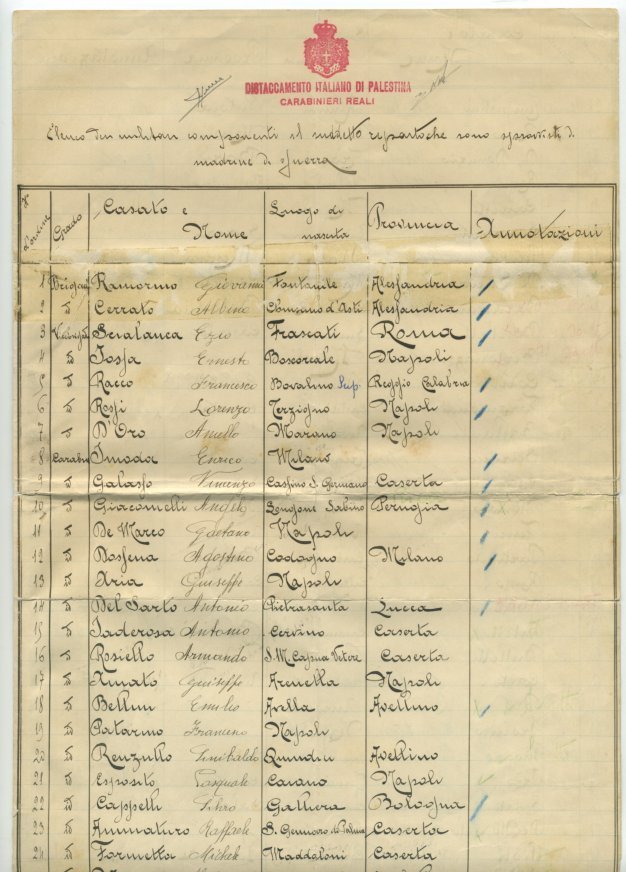 DISTACCAMENTO ITALIANO DI PALESTINA
CARABINIERI REALI
Elenco dei militari componenti il suddetto reparto che sono sprovvisti di
madrine di Guerra
N° d'ordine Grado Casato e Nome Luogo di nascita Provincia Annotazioni
1 Brigad Ramorino Giovanni Fontanile Alessandria
2 " Cerrato Albino d'Asti Alessandria
3 Scialanca Ezio Frascati Roma
4 " Ernesto Boscoreale Napoli
5 " Racco Francesco Bovalino Sup. Reggio Calabria
6 " Rossi Lorenzo Terzigno Napoli
7 " D'Oro Aniello Marano Napoli
8 Carabin Imoda Enrico Milano
9 " Galasso Vincenzo Cassino S. Germano Caserta
10 " Giacomelli Angelo Longone Sabino Perugia
11 " De Marco Gaetano Napoli
12 " Dossena Agostino Codogno Milano
13 " Aria Giuseppe Napoli
14 " Del Sarto Antonio Pietrasanta Lucca
15 " Taderosa Antonio Cervino Caserta
16 " Rosiello Armando S. M. Capua Vetere Caserta
17 " Amato Giuseppe Arenella Napoli
18 " Bellini Emilio Avella Avellino
19 " Patarino Francesco Napoli
20 " Renzullo Sinibaldo Quindici Avellino
21 " Esposito Pasquale Caivano Napoli
22 " Cappelli Silvio Galliera Bologna
23 " Ammaturo Raffaele S. Gennaro di Palma Caserta
24 " Formetta Michele Maddaloni Caserta